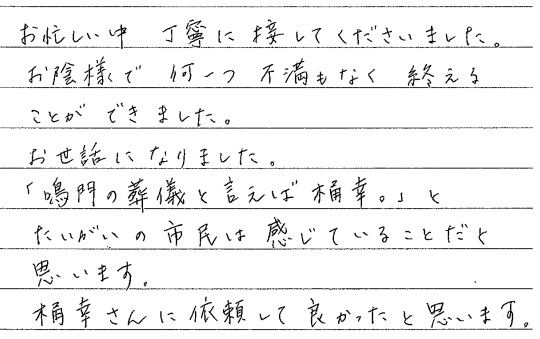 お忙しい中 丁寧に接してくださいました。
お陰様で 何一つ 不満もなく 終える
ことが できました。
お世話になりました。
「鳴門の葬儀と言えば桶幸。」と
たいがいの市民は感じていることだと
思います。
桶幸さんに依頼して良かったと思います。